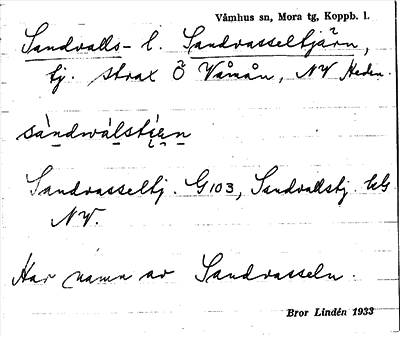 Våmhus sn, Mora tg, Koppb. l.
Sandvalls- l. Sandvasseltjärn,
tj. strax Ö Våmån, NV Heden.
sàndwálstíen
Sandvasseltj. G103, Sandvallstj.
NV.
Har namn av Sandvasseln.
Bror Lindén 1933